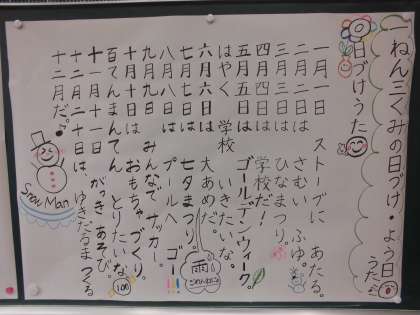 一ねん三くみの日づけ・よう日うた
日づけうた
一月一日　ストーブに　あたる。
二月二日　さむい　ふゆ。
三月三日は　ひなまつり。
四月四日は　学校だ！
五月五日は　ゴールデンウィーク。
はやく　学校　いきたいな。
六月六日は　大あめだ。
七月七日は　七夕まつり。
八月八日は　プールへ　ゴー!!!
九月九日　みんなで　サッカー。
十月十日は　おもちゃ　づくり。
百てんまんてん　とりたいな。
100
十一月十一日　がっき　あそび。
十二月十二日は、ゆきだるま　つくる
十二月だ。
雨
Snow Man